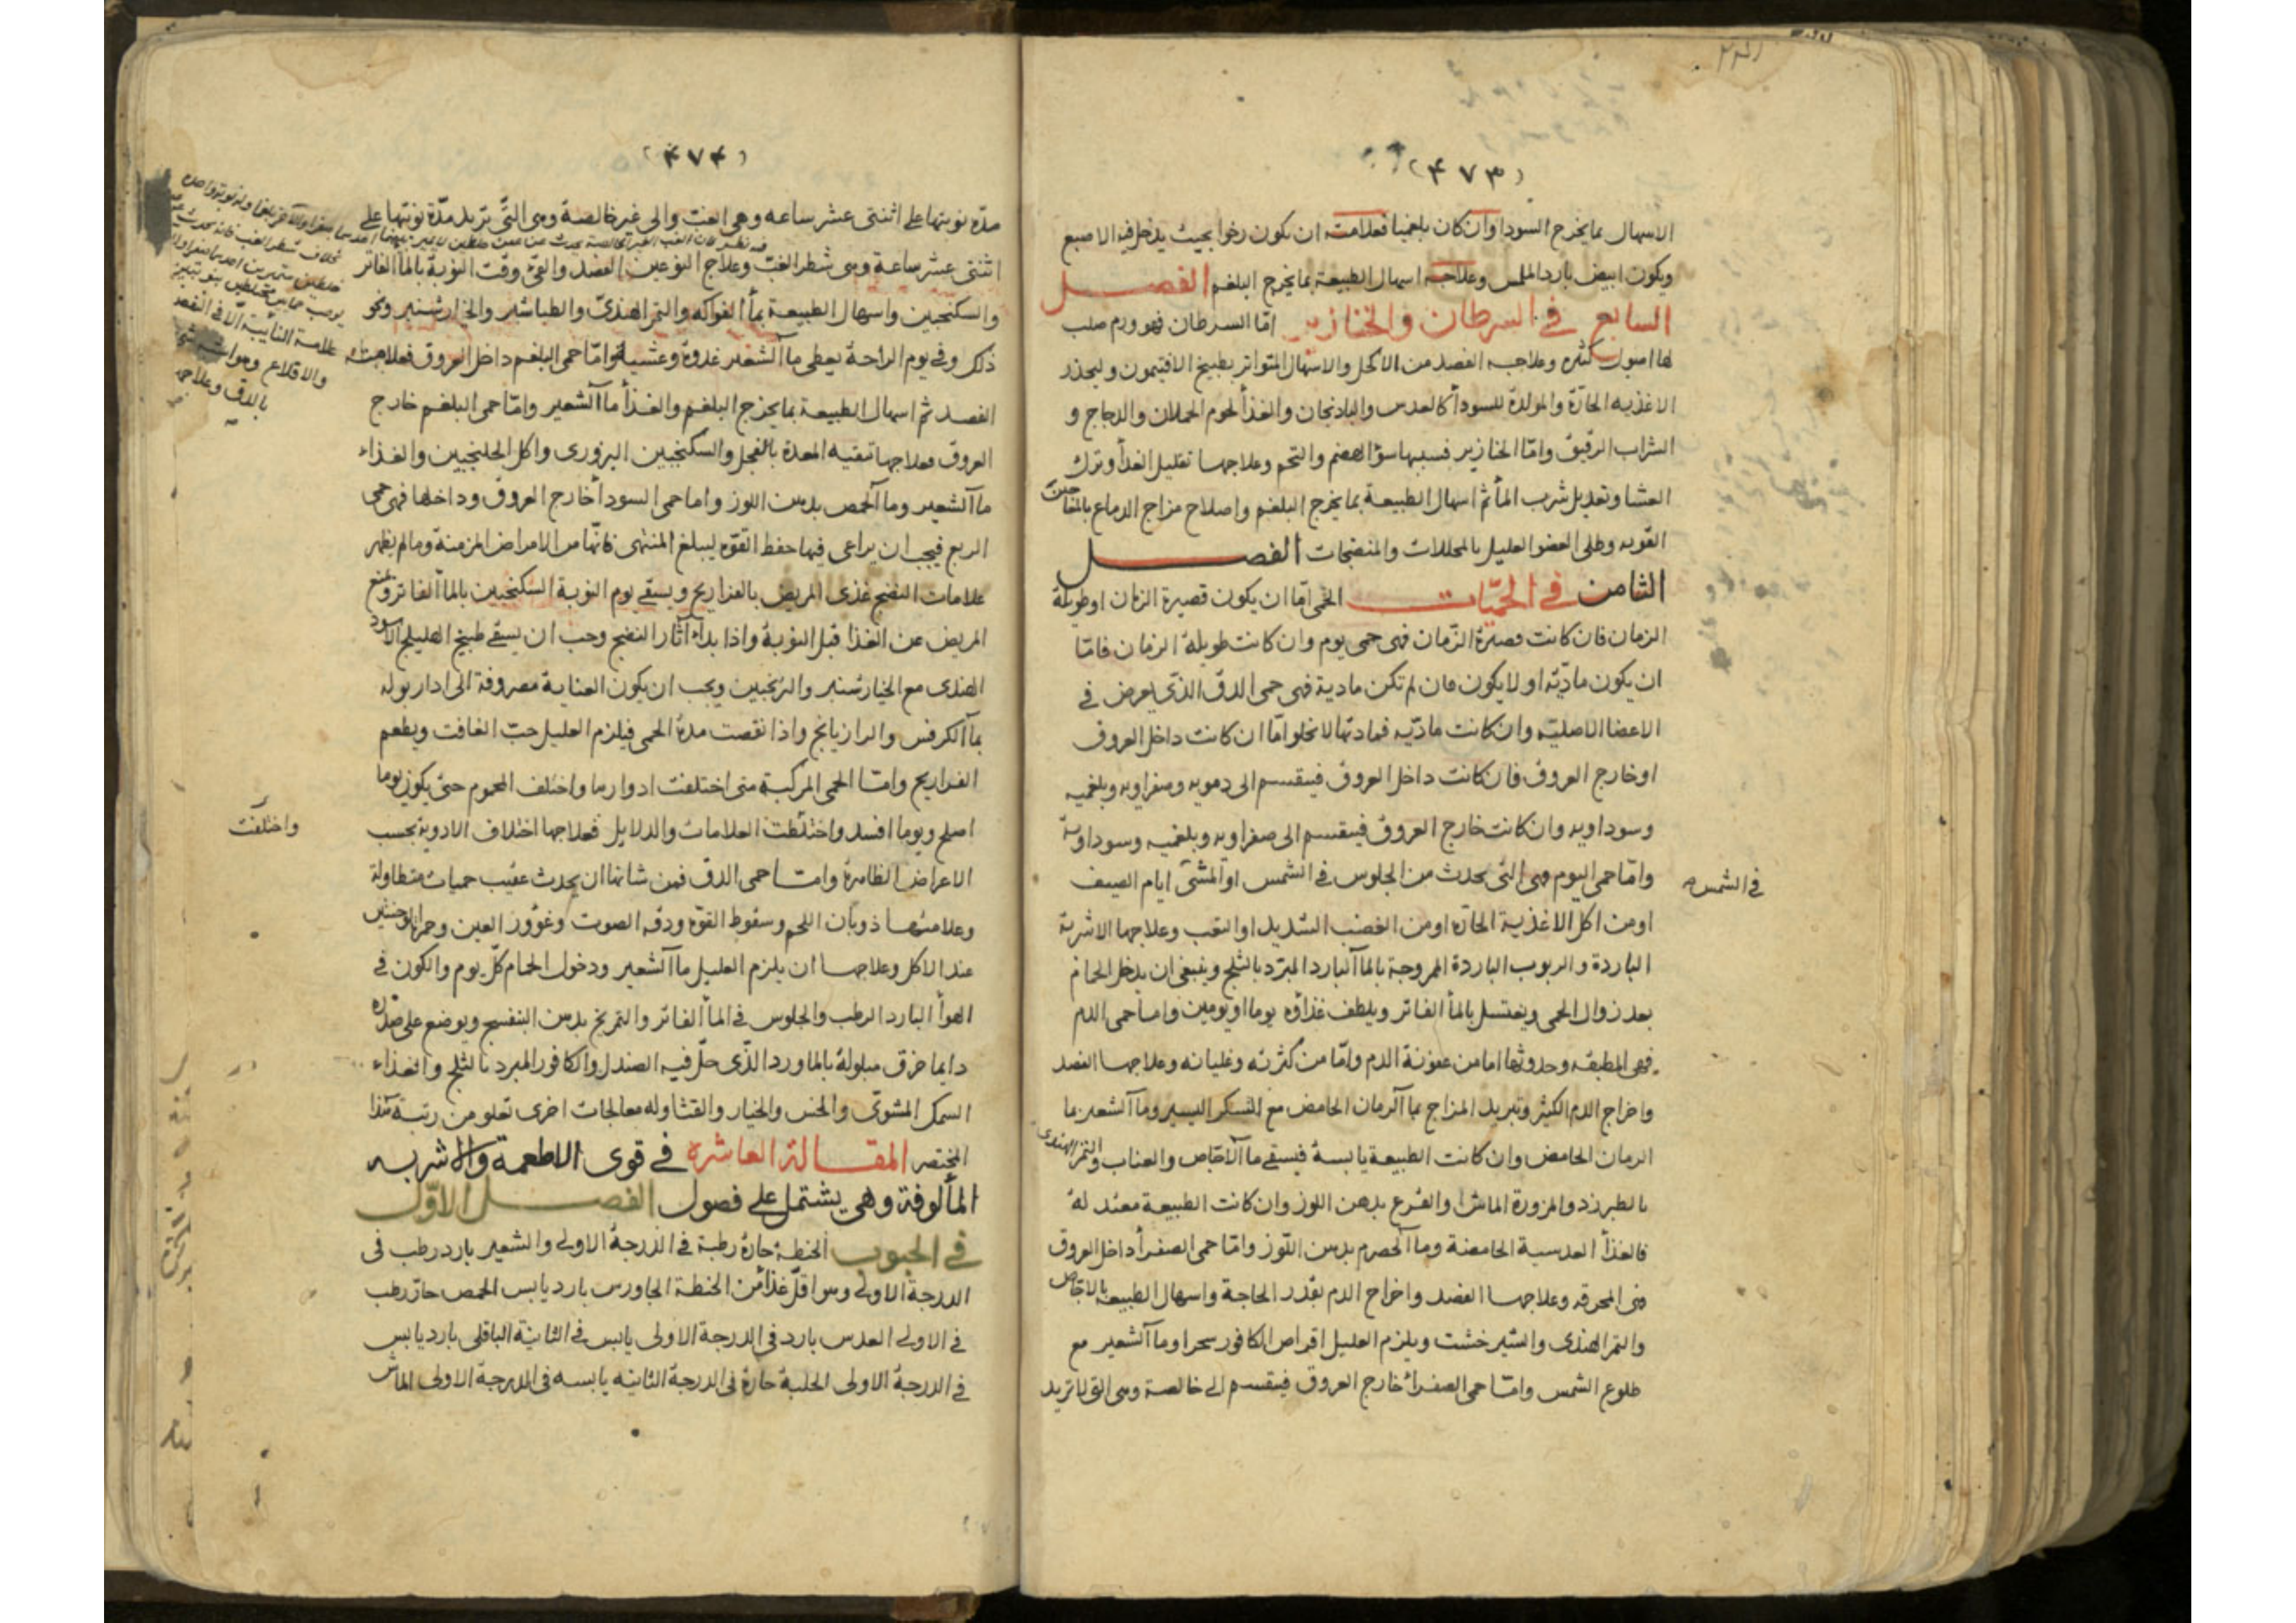 (٤٧٣)
الاسهال بما يخرج السودا وان كان بلغميا فعلامته ان يكون رخوا بحيث يدخل فيه الاصبع
ويكون ابيض بارد الملمس وعلاجه اسهال الطبيعة بما يخرج البلغم الفصل
السابع في السرطان والخنازير امّا السرطان فهو ورم صلب
لها اصول كثيره وعلاجه الفصد من الاكحل والاسهال المتواتر بطبيخ الافتيمون وليحذر
الاغذيه الحارّة والمولدة للسودأ كالعدس والباذنجان والغذأ لحوم الحملان والدجاج و
الشراب الرقيق وامّا الخنازير فسببها سؤ الهضم والتخم وعلاجها تقليل الغذأ وترك
العشا وتعديل شرب المأ ثم اسهال الطبيعة بما يخرج البلغم واصلاح مزاج الدماغ بالمعاجين
القويه وطلى العضو العليل بالمحللات والمنضجات الفصل
الثامن في الحميّات الحمى امّا ان يكون قصيرة الزمان او طويلة
الزمان فان كانت قصيرة الزّمان فهى حمى يوم وان كانت طويلة الزمان فامّا
ان يكون ماديّه او لا يكون فان لم تكن مادية فهى حمى الدق الذى يعرض في
الاعضا الاصليّه وان كانت ماديّه فمادتها لا تخلوا امّا ان كانت داخل العروق
او خارج العروق فان كانت داخل العروق فينقسم الى دمويه وصفراويه وبلغميه
وسوداويه وان كانت خارج العروق فينقسم الى صفراويه وبلغميه وسوداويّة
وامّا حمى اليوم وهى التى يحدث من الجلوس في الشمس او المشى ايام الصيف
في الشمس
او من اكل الاغذية الحارّه او من الغضب الشديد او التعب وعلاجها الاشربة
الباردة والربوب الباردة الممزوجة بالمأ البارد المبرّد بالثلج وينبغى ان يدخل الحمام
بعد زوال الحمى ويغتسل بالمأ الفاتر ويلطف غذاؤه يوما او يومين وامّا حمى الدم
فهى المطبقه وحدوثها اما من عفونة الدم وامّا من كثرته وغليانه وعلاجها الفصد
واخراج الدم الكثير وتبريد المزاج بمأ الرمان الحامض مع السكر اليسير ومأ الشعير بما
الرمان الحامض وان كانت الطبيعة يابسة فيسقى مأ الاجّاص والعناب والتمر الهندى
بالطبرزد والمزورة الماش والقرع بدهن اللوز وان كانت الطبيعة معتدلة
فالغذأ العدسية الحامضة ومأ الحصرم بدهن اللّوز وامّا حمى الصفرأ داخل العروق
فهى المحرقه وعلاجها الفصد واخراج الدم بقدر الحاجة واسهال الطبيعة بالاجّاص
والتمر الهندى والشيرخشت ويلزم العليل اقراص الكافور سحرا ومأ الشعير مع
طلوع الشمس وامّا حمى الصفرأ خارج العروق فينقسم الى خالصة وهى التى لا تزيد
(٤٧٤)
مدّة نوبتها على اثنتى عشر ساعه وهى الغب والى غير خالصة وهى التّى تزيد مدّة نوبتها على
اثنتى عشر ساعة وهى شطر الغبّ وعلاج النوعين الفصد والقئ وقت النوبة بالمأ الفاتر
والسكنجبين واسهال الطبيعة بمأ الفواكه والتمر الهندىّ والطباشير والخيارشنبر ونحو
ذلك وفي يوم الراحة يعطى مأ الشعير غدوة وعشية وامّا حمى البلغم داخل العروق فعلاجها
الفصد ثم اسهال الطبيعة بما يخرج البلغم والغذأ مأ الشعير وامّا حمى البلغم خارج
العروق فعلاجها تنقيه المعدة بالفجل والسكنجبين البزورى واكل الجلنجبين والغذاء
مأ الشعير ومأ الحمص بدهن اللوز واما حمى السودأ خارج العروق وداخلها فهى حمى
الربع فيجب ان يراعى فيها حفظ القوّه ليبلغ المنتهى فانّها من الامراض المزمنة ومالم يظهر
علامات النضج غذى المريض بالفراريج ويسقى يوم النوبة السكنجبين بالمأ الفاتر ومنع
المريض عن الغذا قبل النوبة واذا بدأء آثار النضج وجب ان يسقى طبيخ الهليلج الاسود
الهندى مع الخيارشنبر والترنجبين ويجب ان يكون العناية مصروفة الى ادار بوله
بمأ الكرفس والرازيانج واذا نقصت مدة الحمى فيلزم العليل حبّ الغافت ويطعم
الفراريج وامّا الحمى المركبة متى اختلفت ادوارها واختلف المحموم حتى يكون يوما
اصلح ويوما افسد واختلطت العلامات والدلايل فعلاجها اختلاف الادوية بحسب
واختلفت
الاعراض الظاهرة وامّا حمى الدق فمن شانها ان يحدث عقيب حميات متطاولة
وعلامتها ذوبان اللحم وسقوط القوّه ودقه الصوت وغؤور العين وحمرة الوجنتين
عند الاكل وعلاجها ان يلزم العليل مأ الشعير ودخول الحمام كلّ يوم والكون في
الهوأ البارد الرطب والجلوس في المأ الفاتر والتمريخ بدهن البنفسج ويوضع على صدره
دايما خرق مبلولة بالماورد الذّى حلّ فيه الصندل والكافور المبرد بالثلج والغذاء
السمك المشوىّ والخس والخيار والقثا وله معالجات اخرى تعلو من رتبة هذا
المختصر المقالة العاشره في قوى الاطعمة والاشربه
المألوفة وهى يشتمل على فصول الفصل الاوّل
في الحبوب الحنطة حارة رطبة في الدرجة الاولى والشعير بارد رطب فى
الدرجة الاولى وهو اقلّ غذأ من الحنطة الجاورس بارد يابس الحمص حار رطب
في الاولى العدس بارد في الدرجة الاولى يابس في الثانية الباقلى بارد يابس
في الدرجة الاولى الحلبة حارة في الدرجة الثانيه يابسه فى الدرجة الاولى الماش